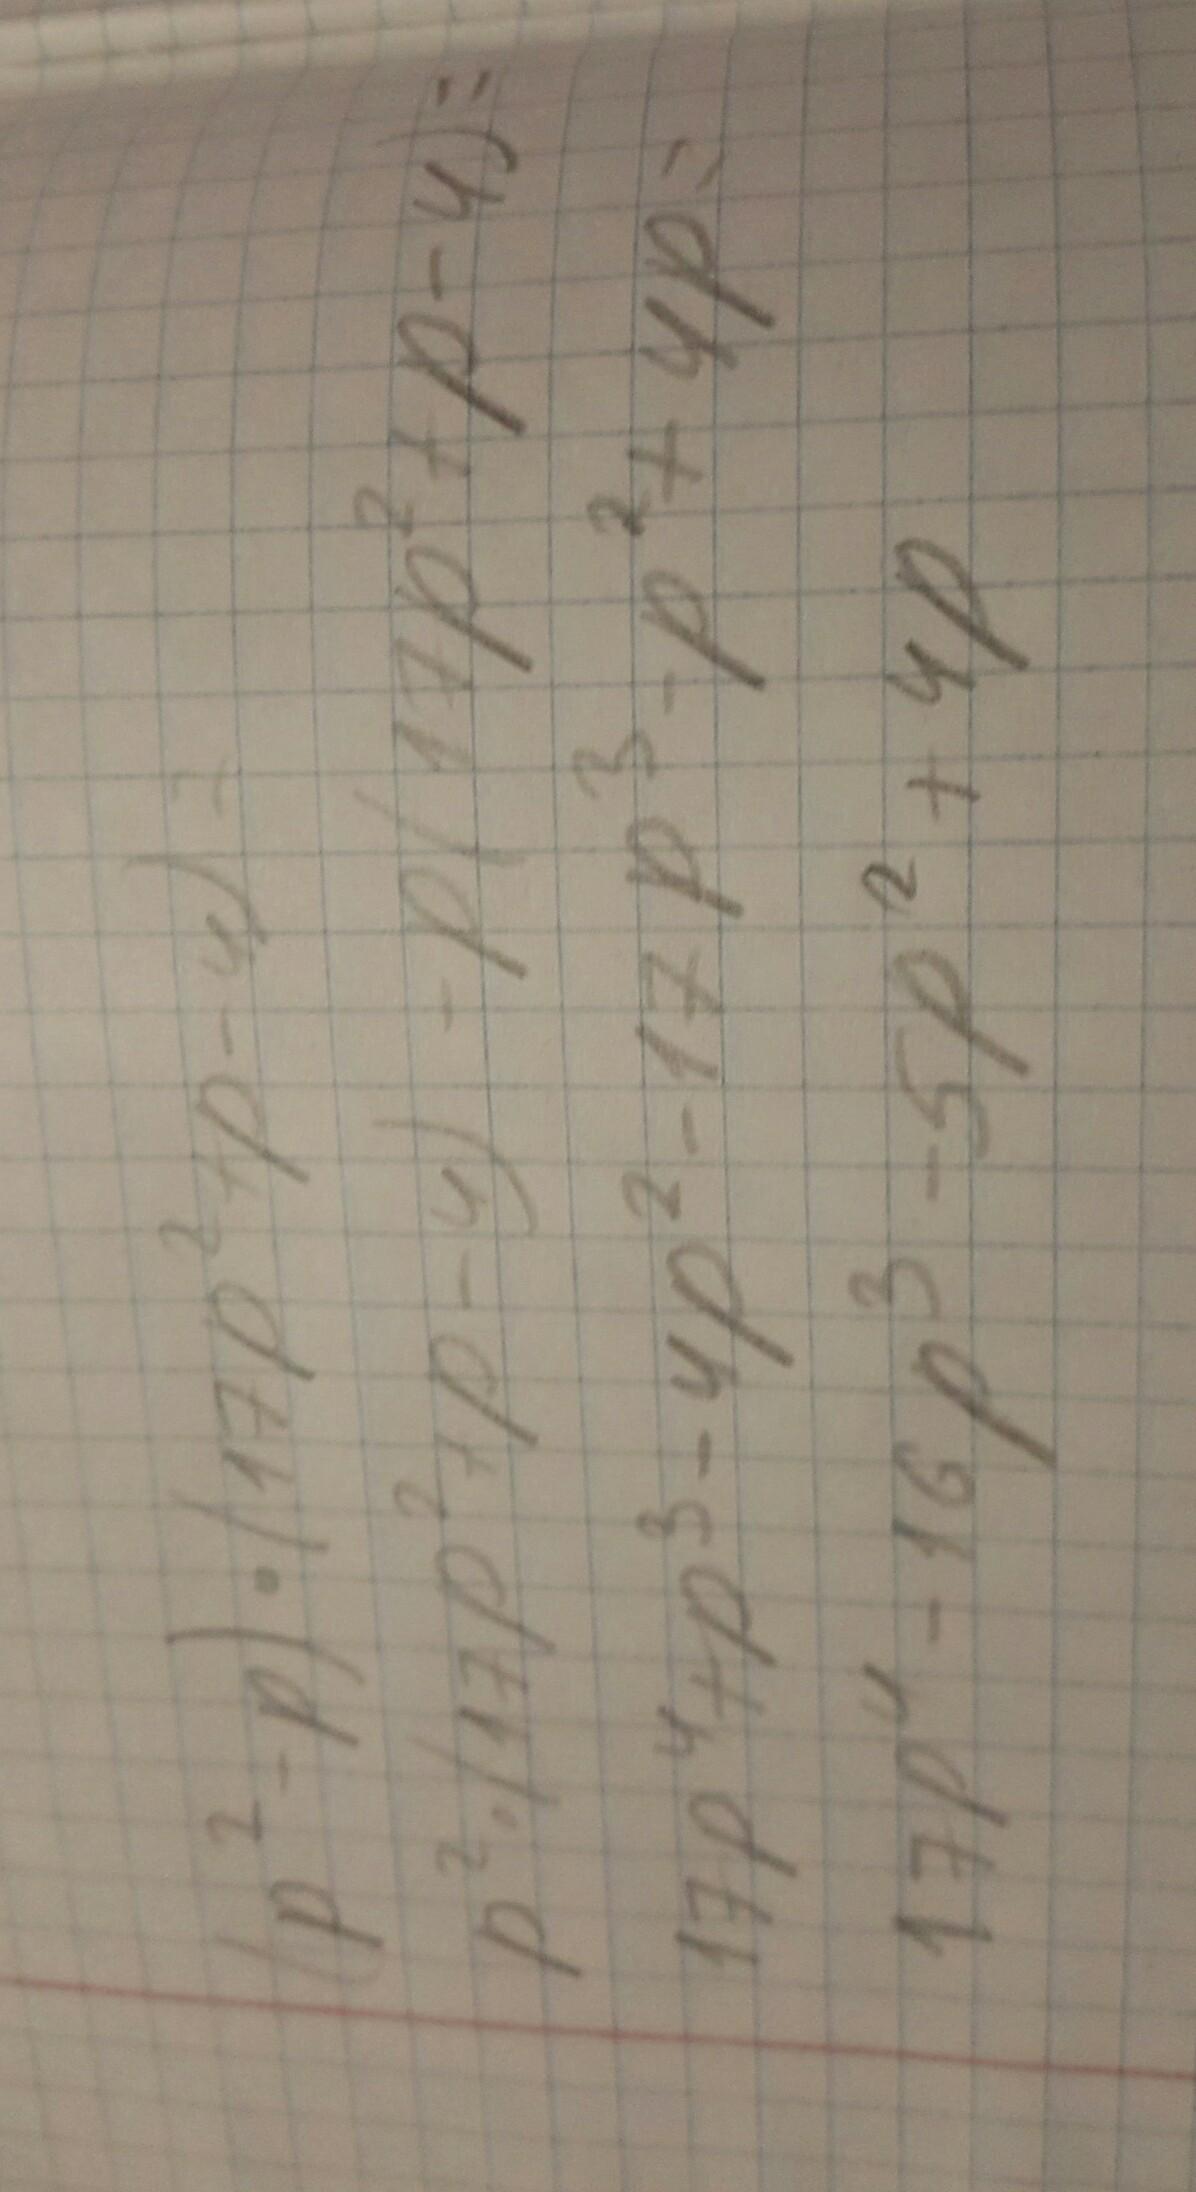 (p² - p) · (17p² + p - 4) =
p² · (17p² + p - 4) - p(17p² + p - 4) =
17p⁴ + p³ - 4p² - 17p³ - p² + 4p =
17p⁴ - 16p³ - 5p² + 4p